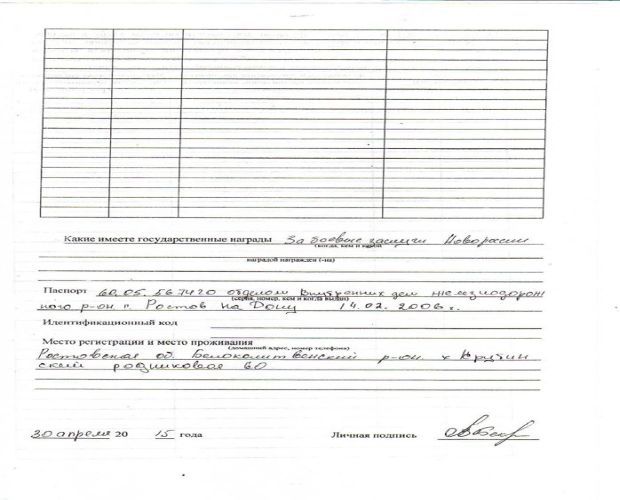 Какие имеете государственные награды За боевые заслуги Новоросии
(когда, кем и какой
наградой награжден (-на)
Паспорт 60.05. 567420 отделом внутренних дел железнодорож
(серия, номер, кем и когда выдан)
ного р-он. г. Ростов на Дону 14.02. 2006 г.
Идентификационный код
Место регистрации и место проживания
(домашний адрес, номер телефона)
Ростовская об. Белокалитвенский р-он. х Крутин
ский родниковая 60
30 апреля 20 15 года Личная подпись